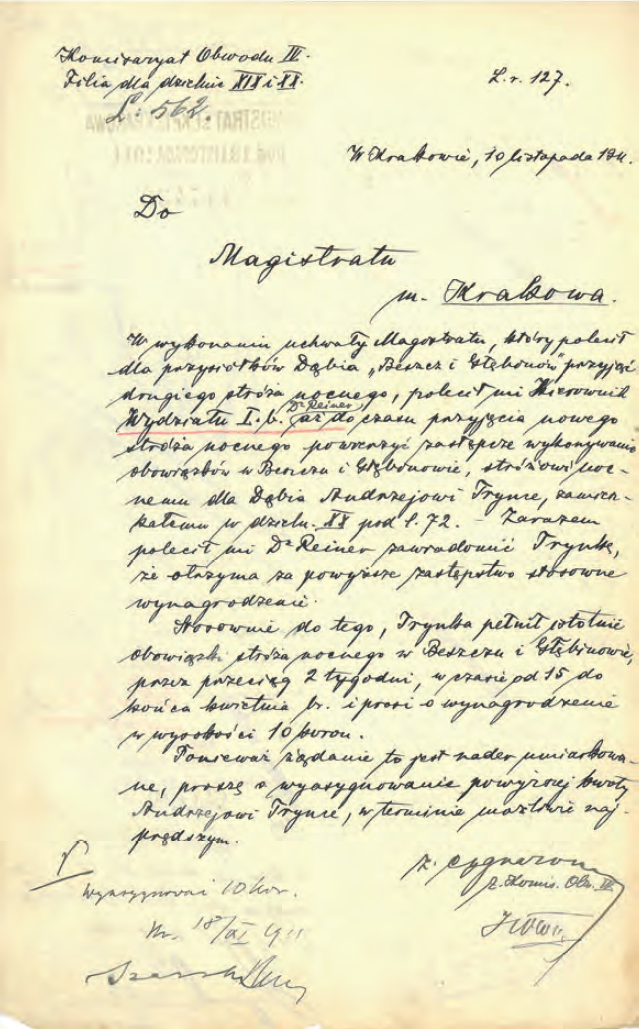 Komisaryat Obwodu IV.
Filia dla dzielnic XIX i XX.
L: 562.
L. r. 127.
W Krakowie, 10 listopada 1911.
Do
Magistratu
m. Krakowa.
W wykonaniu uchwały Magistratu, który polecił
dla przysiółków Dąbia „Beszcz i Głębinów" przyjąć
drugiego stróża nocnego, polecił mi Kierownik
Wydziału I. b. Dr Reiner, aż do czasu przyjęcia nowego
stróża nocnego powierzyć zastępcze wykonywanie
obowiązków w Beszczu i Głębinowie, stróżowi noc-
nemu dla Dąbia Andrzejowi Trynce, zamiesz-
kałemu w dzieln. XX pod l. 72. – Zarazem
polecił mi Dr Reiner zawiadomić Trynkę,
że otrzyma za powyższe zastępstwo stosowne
wynagrodzenie.
Stosownie do tego, Trynka pełnił istotnie
obowiązki stróża nocnego w Beszczu i Głębinowie,
przez przeciąg 2 tygodni, w czasie od 15 do
końca kwietnia br. i prosi o wynagrodzenie
w wysokości 10 koron.
Ponieważ żądanie to jest nader umiarkowa-
ne, proszę o wyasygnowanie powyższej kwoty
Andrzejowi Trynce, w terminie możliwie naj-
prędszym.
Z. Komis. Obw. IV.
Wyasygnować 10 kor.
Kr. 18/XI 1911